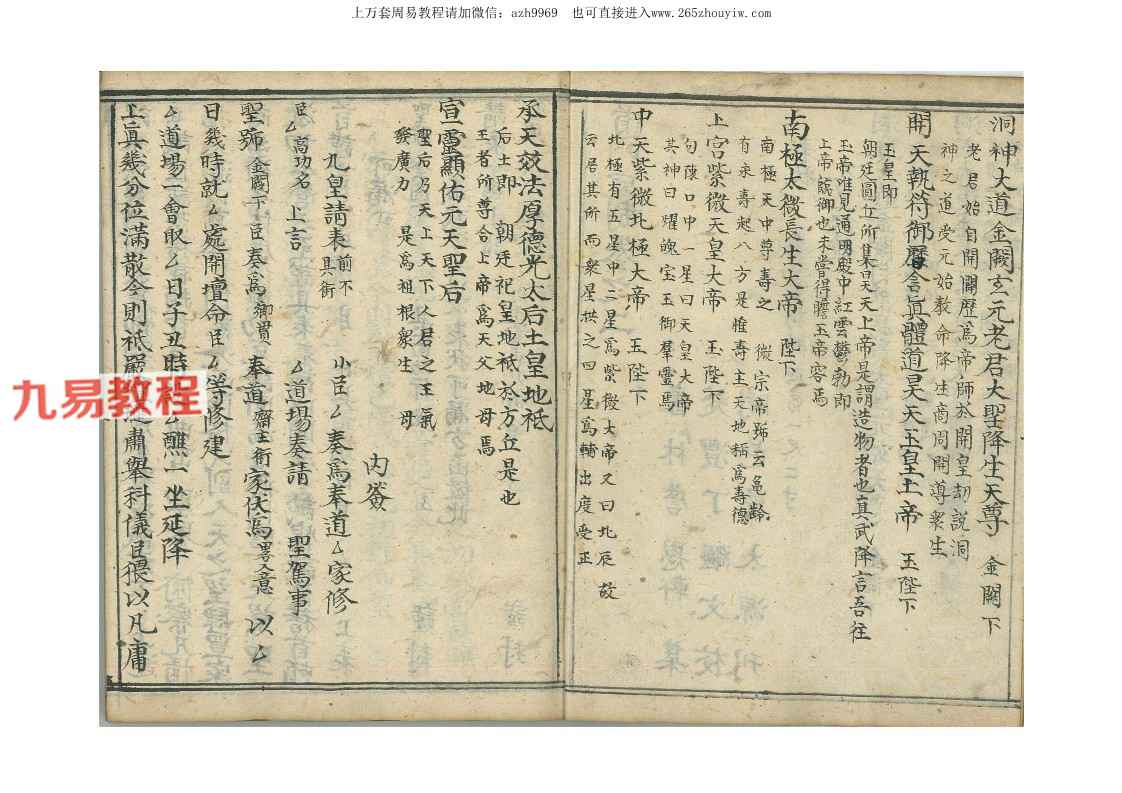 上万套周易教程请加微信：azh9969 也可直接进入www.265zhouyiw.com
洞神大道金闕玄元老君大聖降生天尊 金闕下
老君始自開闢歷為帝師於開皇劫說洞
神之道受元始教命降生商周開導衆生
開天執符御曆含真體道昊天玉皇上帝 玉陛下
玉皇即
朝廷圜丘所集昊天上帝是謂造物者也真武降言吾往
玉帝惟見通明殿中紅雲鬱勃即
上帝 御也未嘗得瞻玉帝容焉
南極太微長生大帝 陛下
南極天中尊壽之 徽宗帝號云龜齡
有永壽起八方是惟壽主天地稱為壽德
上宮紫微天皇大帝 玉陛下
勾陳口中一星曰天皇大帝
其神曰耀魄宝玉御羣靈焉
中天紫微北極大帝 玉陛下
北極有五星中二星為紫微大帝又曰北辰故
云居其所而衆星拱之四星為輔出度受正
承天效法厚德光大后土皇地祇
后土即 朝廷祀皇地祇於方丘是也
王者所尊合上帝為天父地母焉
宣靈顯佑元天聖后
聖后乃天上天下人君之王氣
發廣力 是為祖根衆生 母
內簽
九皇請表前不具銜 小臣厶奏為奉道厶家修
臣厶高功名上言 厶道場奏請 聖駕事
聖號金闕下臣奏為鄉貫奉道齋主銜家伏為畧入意以厶
日幾時就厶處開壇命臣厶等修建
厶道場一會取厶日子丑時 醮一坐延降
上真幾分位滿散令則祇嚴 肅舉科儀臣猥以凡庸
九易教程